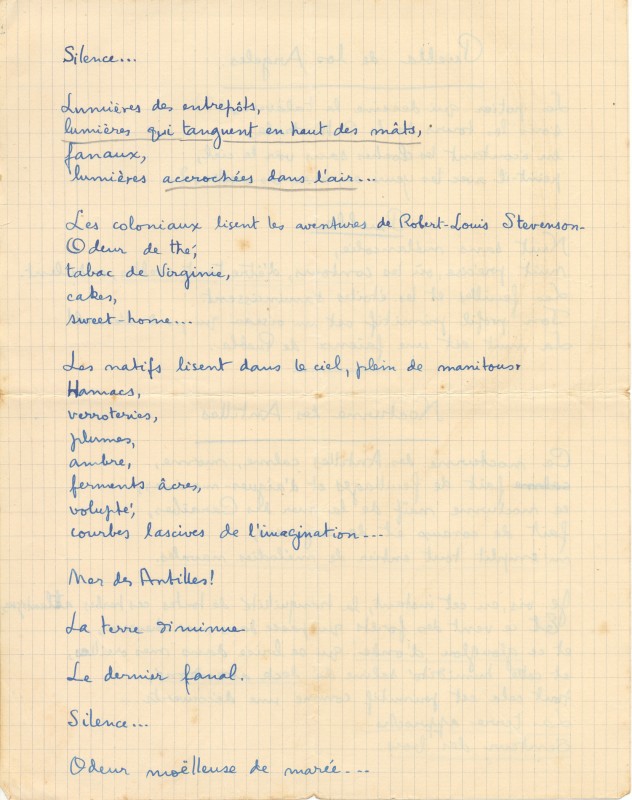 Silence...
Lumières des entrepôts,
lumières qui tanguent en haut des mâts,
fanaux,
lumières accrochées dans l'air...
Les coloniaux lisent les aventures de Robert-Louis Stevenson-
Odeur de thé,
tabac de Virginie,
cakes,
sweet-home...
Les natifs lisent dans le ciel, plein de manitous.
Hamacs,
verroteries,
plumes,
ambre,
ferments âcres,
volupté,
courbes lascives de l'imagination...
Mer des Antilles!
La terre diminue
Le dernier fanal.
Silence...
Odeur moëlleuse de marée...